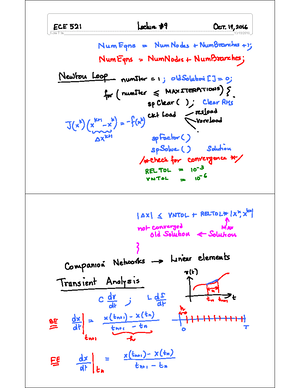 ECE 521 Lecture #9 Oct. 19, 2016
NumEqns = NumNodes + NumBranches + 1;
NumEqns = NumNodes + NumBranches;
Newton Loop — numIter = 1; oldSolution[] = 0;
for (numIter ≤ MAXITERATIONS) {
spClear(); Clear RHS
ckt Load — resload
Vsrcload
J(x^k)(x^{k+1} - x^k) = -f(x^k)
Δx^{k+1}
spFactor();
spSolve() Solution
/* check for convergence */
RELTOL = 10^-3
VNTOL = 10^-6
|Δx| ≤ VNTOL + RELTOL * |x^k, x^{k+1}|
max
not converged
Old Solution ← Solution
}
Companion Networks → Linear elements
Transient Analysis
x(t)
C dv/dt ; L di/dt
t_n t_{n+1} t
BE dx/dt |t_{n+1} = x(t_{n+1}) - x(t_n) / t_{n+1} - t_n
h
0 T
FE dx/dt |t_n = x(t_{n+1}) - x(t_n) / t_{n+1} - t_n